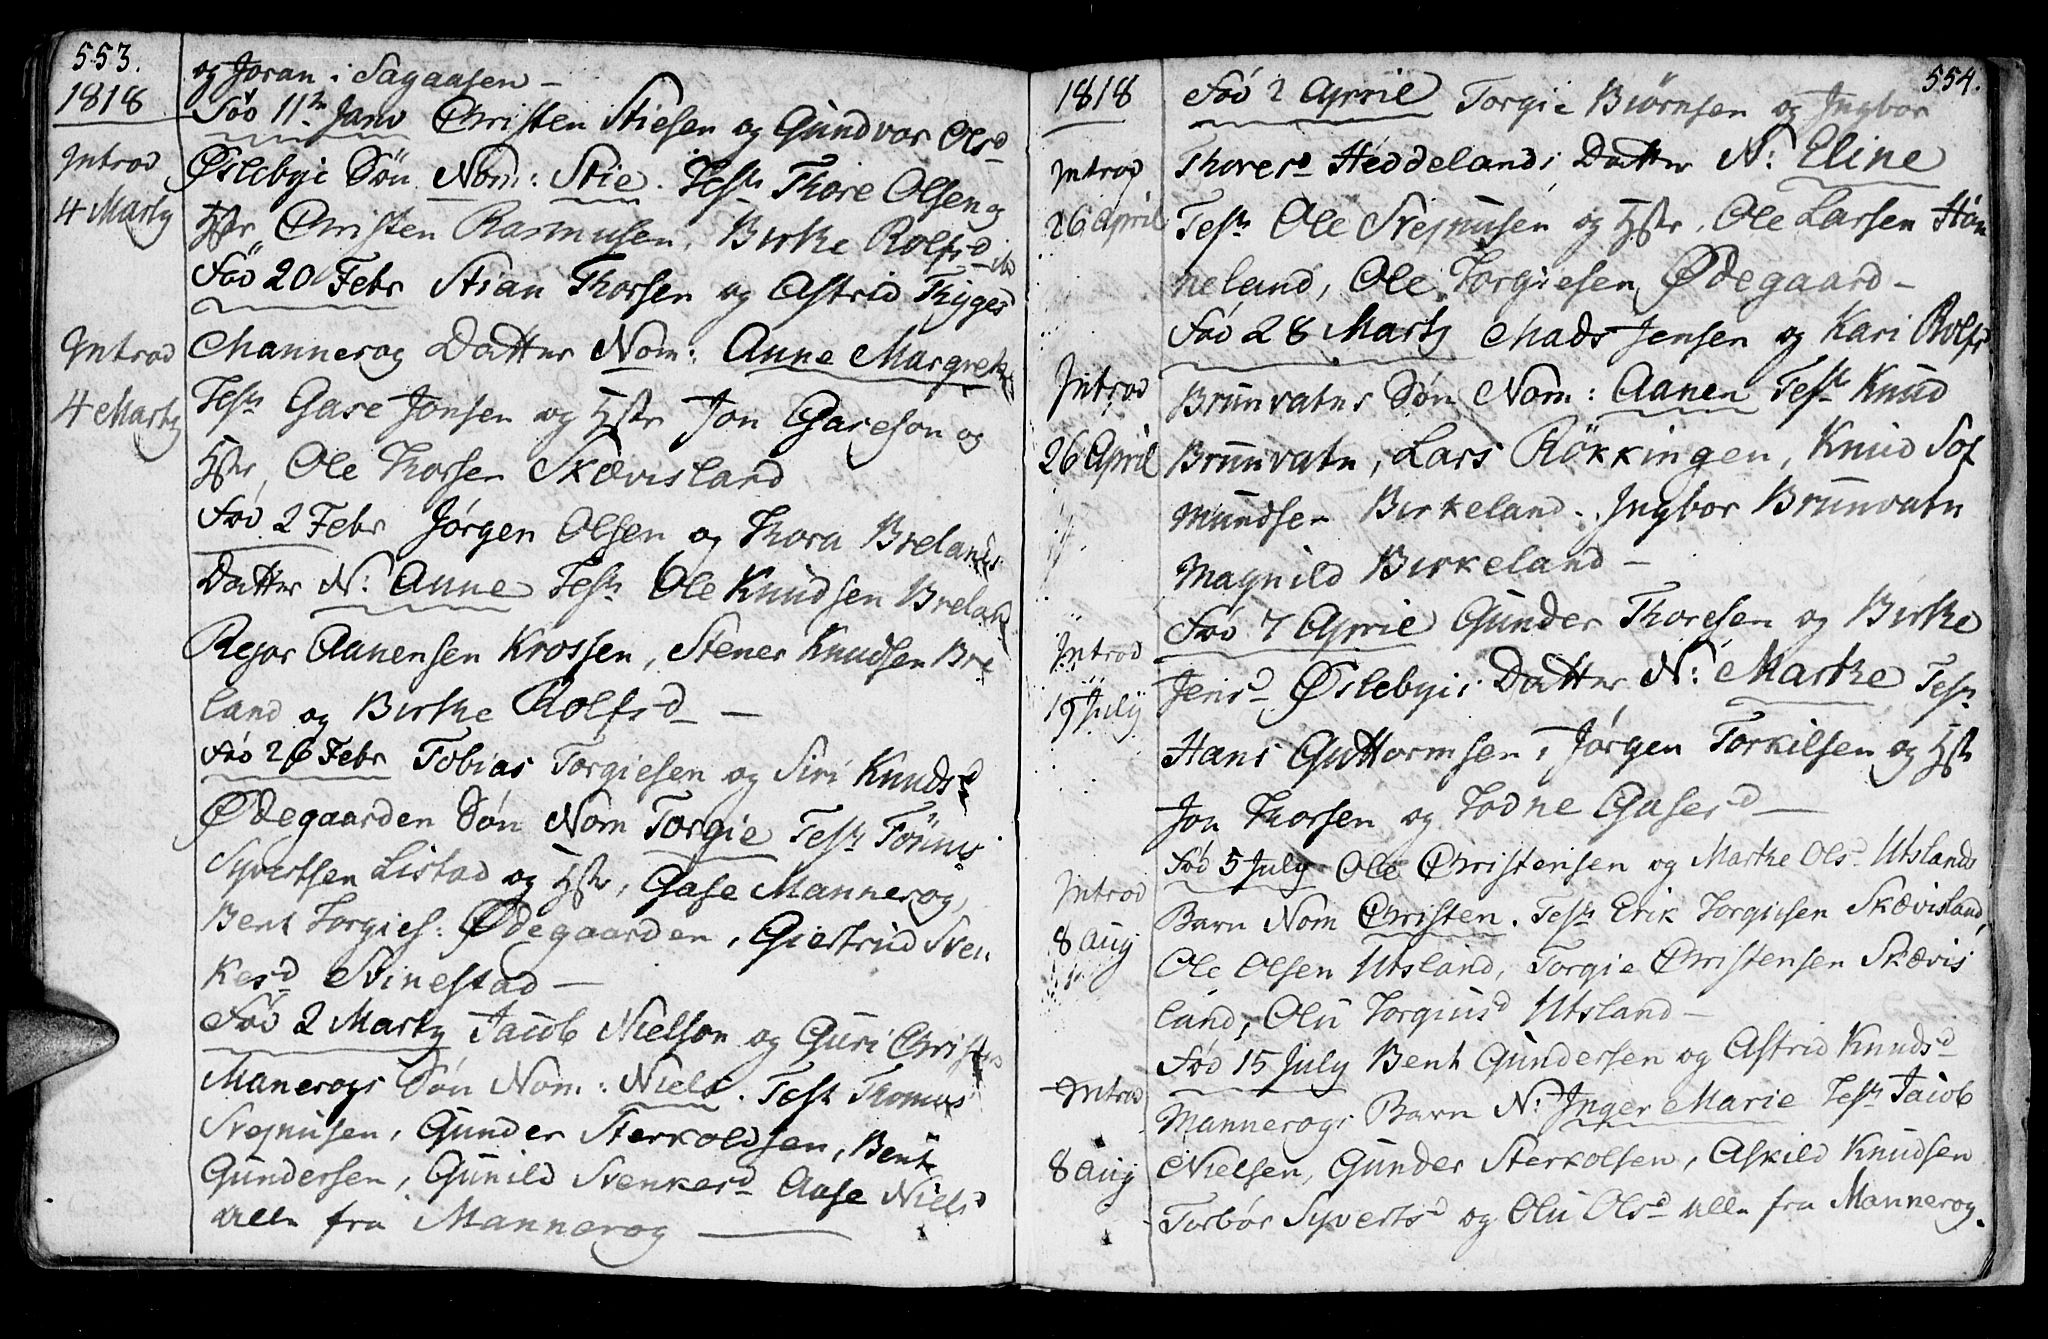 553.
1818
Introd
4 Marty
Introd
4 Marty
og Joran i Sagaasen –
Fød 11te Janv Christen Stiesen og Gundvor Olsd
Øslebyie Søn Nom: Stie. Test Thore Olsen og
Hstr Christen Rasmusen, Birthe Rolfsd
Fød 20 Febr Stian Thorsen og Astrid Thygesd
Mannerog Datter Nom: Anne Margrethe
Test Gase Jonsen og Hstr Jon Gaseson og
Hstr, Ole Thorsen Skævisland
Fød 2 Febr Jørgen Olsen og Thora Brelands
Datter N: Anne Test Ole Knudsen Breland
Rejar Aanensen Krossen, Stener Knudsen Bre
land og Birthe Rolfsd –
Fød 26 Febr Tobias Torgiesen og Siri Knudsd
Ødegaarden Søn Nom Torgie Test Tønnes
Syvertsen Listad og Hstr, Gase Mannerog,
Bent Torgies: Ødegaarden, Giertrud Sven
kesd Svinestad –
Fød 2 Marty Jacob Nielson og Guri Christens
Manerogs Søn Nom: Niels. Test Thomas
Svejnusen, Gunder Sterkoldsen, Bent
Gundersen, Gunild Svenkesd Aase Nielsd
alle fra Mannerog –
554.
1818
Introd
26 April
Introd
26 April
Introd
19 July
Introd
8 Aug
Introd
8 Aug
Fød 2 April Torgie Biørnsen og Ingbor
Thoresd Heddelands Datter N: Eline
Test Ole Svejnusen og Hstr, Ole Larsen Høn
neland, Ole Torgiesen Ødegaard –
Fød 28 Marty Mads Jensen og Kari Rolfs
Brunvatns Søn Nom: Aanen Test Knud
Brunvatn, Lars Røkkingen, Knud Sof
mundsen Birkeland. Ingbor Brunvatn
Magnild Birkeland –
Fød 7 April Gunder Thoresen og Birthe
Jensd Øslebyis Datter N: Marthe Test
Hans Guttormsen, Jørgen Torkilsen og Hstr
Jon Thorsen og Todne Gasesd –
Fød 5 July Ole Christensen og Marthe Olsd Utslands
Barn Nom Christen. Test Erik Torgiesen Skævisland,
Ole Olsen Utsland, Torgie Christensen Skævis
land, Olu Torgiusd Utsland –
Fød 15 July Bent Gundersen og Astrid Knudsd
Mannerogs Barn N: Inger Marie Test Jacob
Nielsen, Gunder Sterkolsen, Askild Knudsen
Torbør Syvertsd og Olu Olsd alle fra Mannerog.